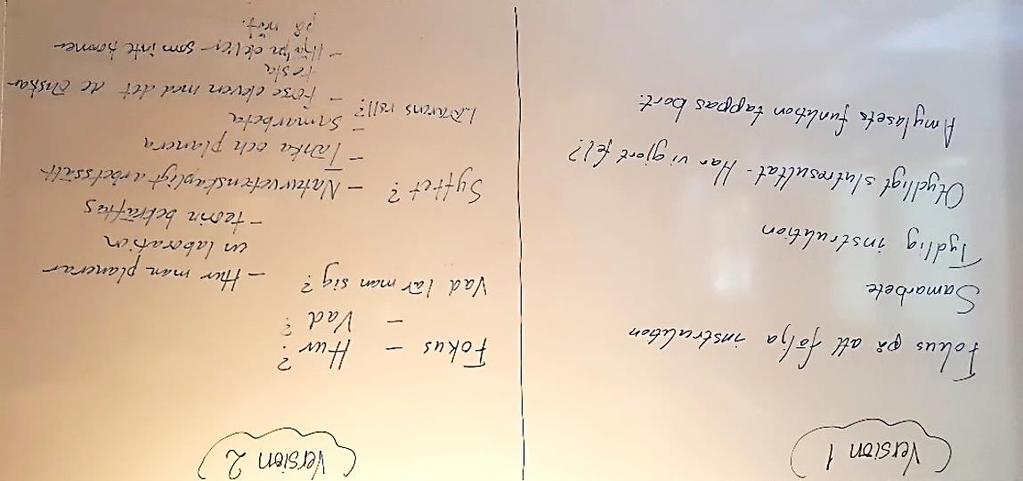 Version 1
Fokus på att följa instruktion
Samarbete
Tydlig instruktion
Otydligt slutresultat - Har vi gjort fel?
Amylasets funktion tappas bort.
Version 2
Fokus - Hur?
- Vad?
Vad lär man sig? - Hur man planerar
en laboration
- teorin bekräftas
Syftet? - Naturvetenskapligt arbetssätt
- Tänka och planera
- Samarbeta
Lärarens roll? - Förse eleven med det de önskar
testa
- Hjälpa elever som inte kommer
på något.